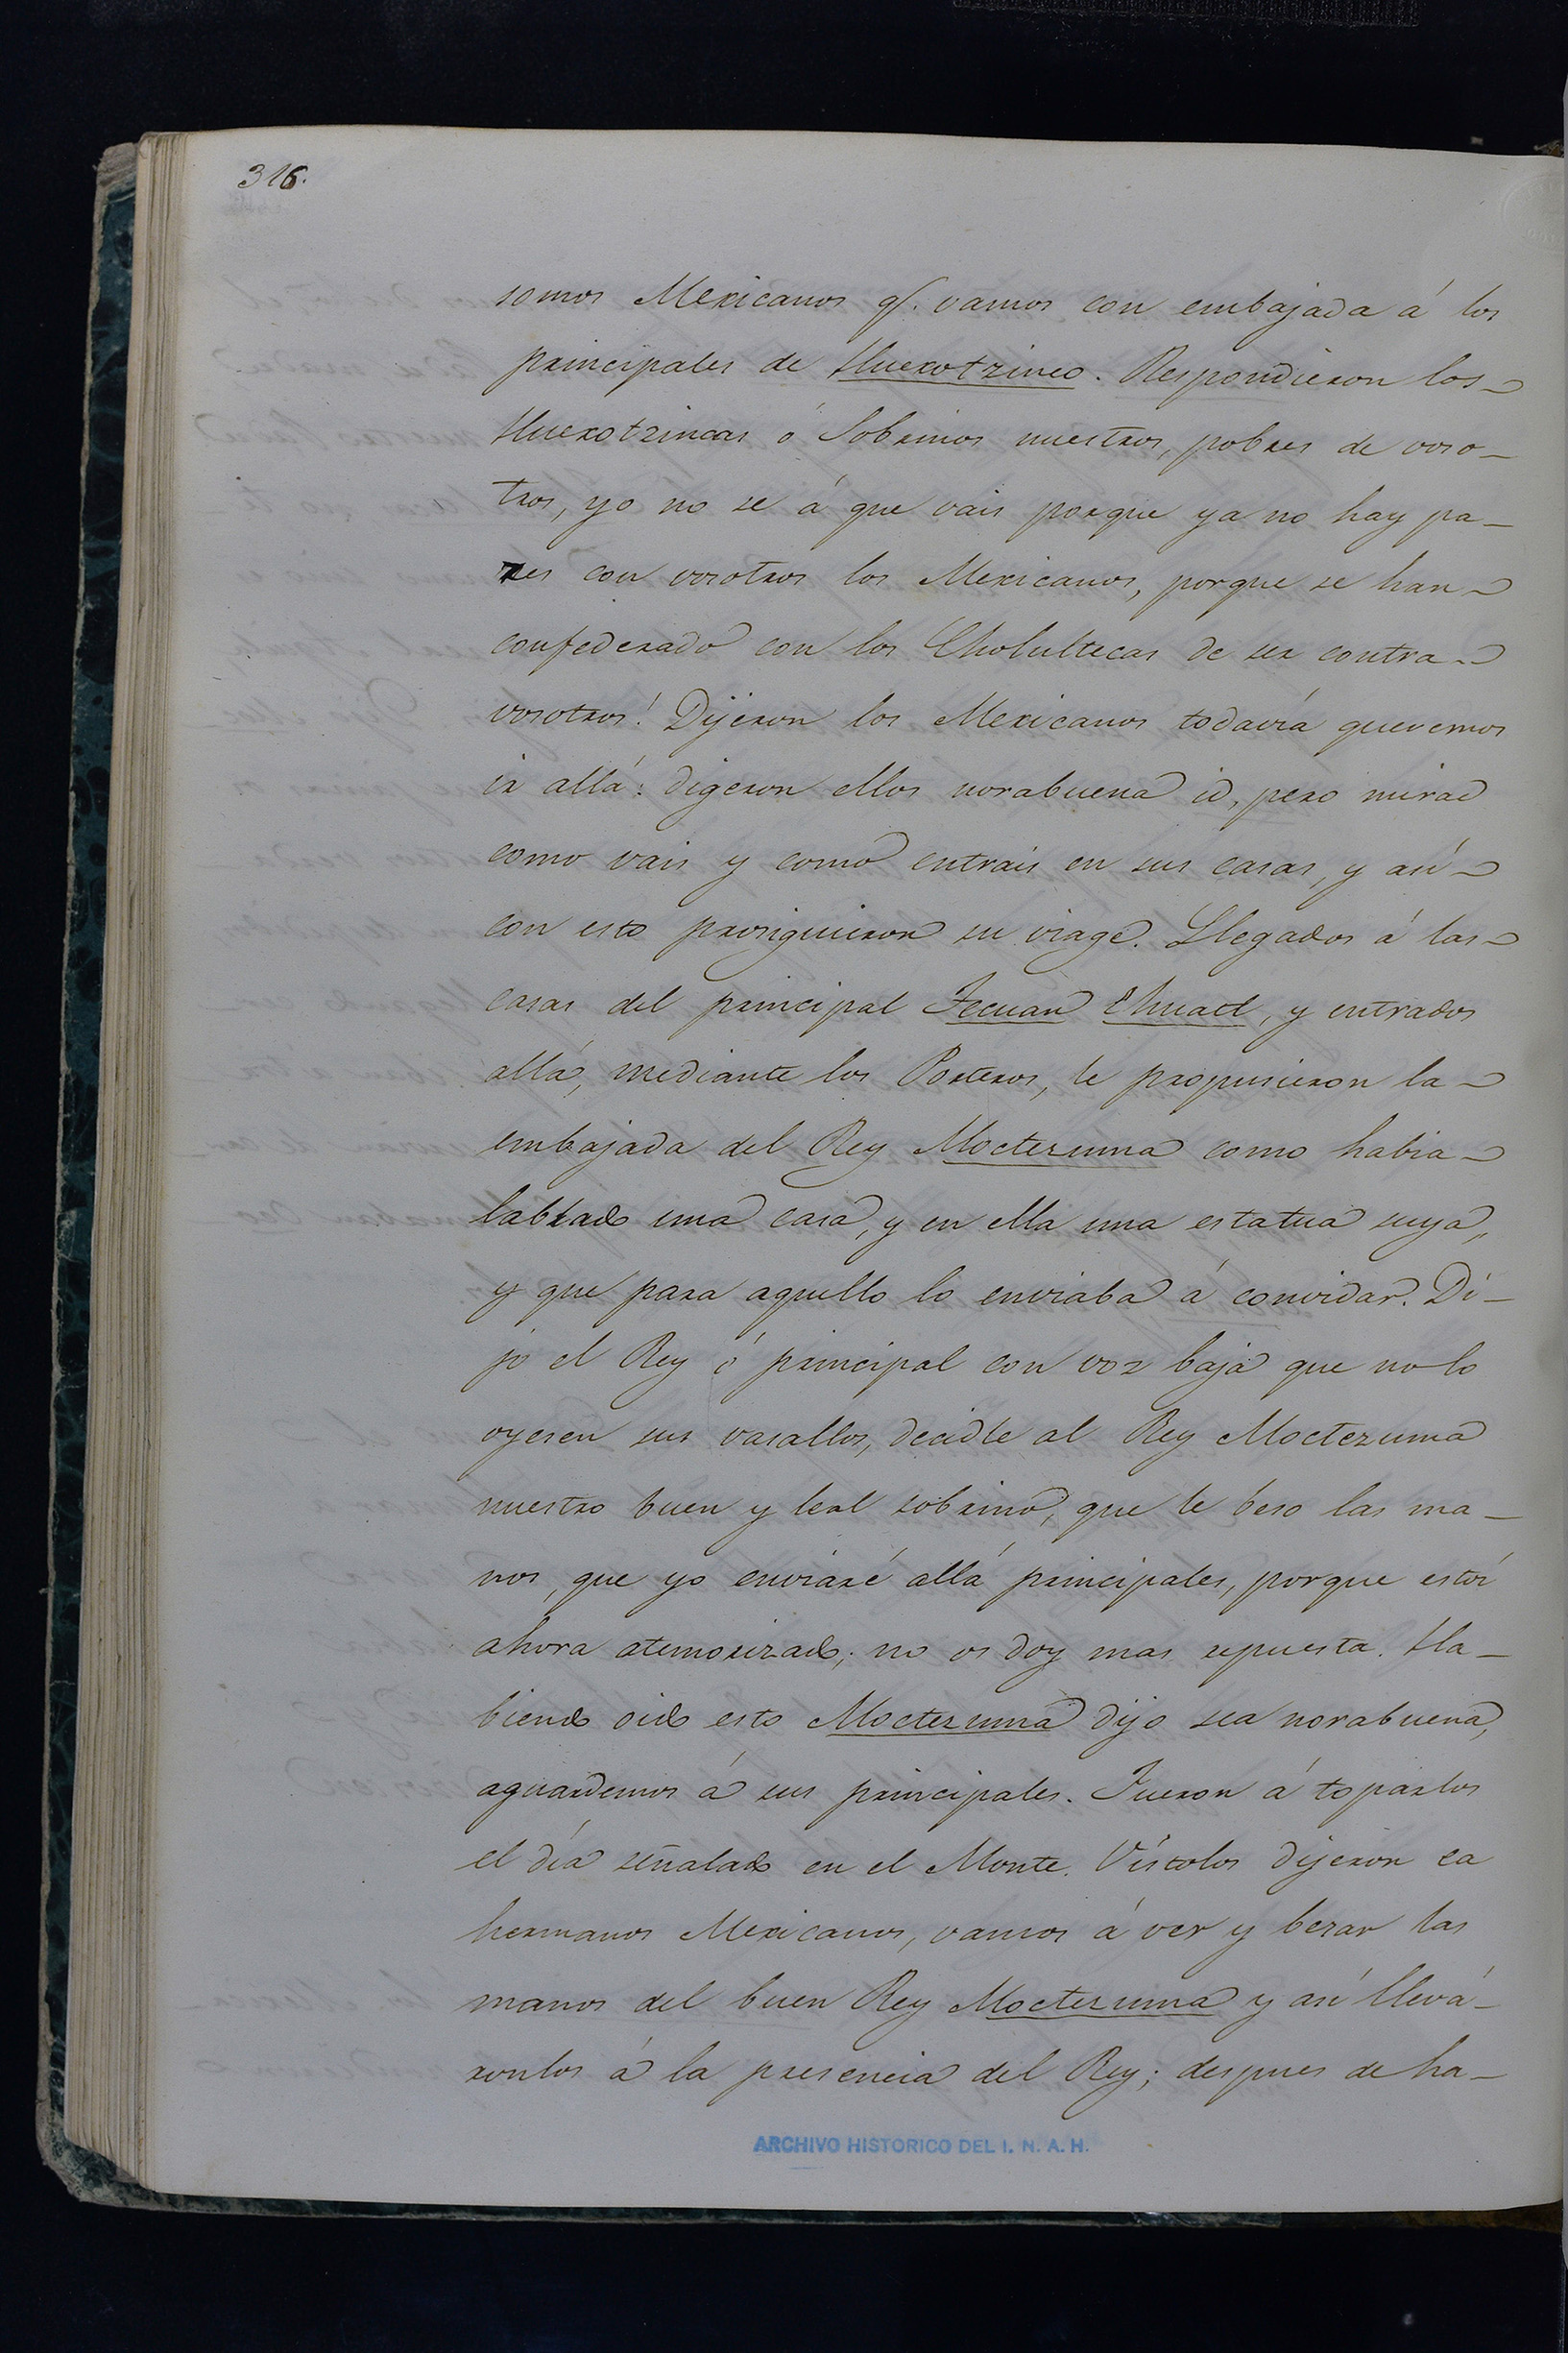 316.
somos Mexicanos q.e vamos con embajada á los
principales de Huexotzinco. Respondieron los
Huexotzincas ó Sobrinos nuestros, pobres de voso-
tros, yo no se á que vais porque ya no hay pa-
zes con vosotros los Mexicanos, porque se han
confederado con los Cholultecas de ser contra
vosotros! Dijeron los Mexicanos todavía queremos
ir allá: digeron ellos norabuena id, pero mirad
como vais y como entrais en sus casas, y así
con esto prosiguieron su viage. Llegados á las
casas del principal Tecuan Ehuatl, y entrados
allá, mediante los Porteros, le propusieron la
embajada del Rey Moctezuma como habia
labrado una casa, y en ella una estatua suya,
y que para aquello lo enviaba á convidar. Di-
jo el Rey ó principal con voz baja que no lo
oyesen sus vasallos, decidle al Rey Moctezuma
nuestro buen y leal sobrino, que le beso las ma-
nos, que yo enviaré allá principales, porque estoi
ahora atemorizado; no os doy mas repuesta. Ha-
biendo oido esto Moctezuma dijo sea norabuena,
aguardemos á sus principales. Fueron á toparlos
el día señalado en el Monte. Vístolos dijeron ea
hermanos Mexicanos, vamos á ver y besar las
manos del buen Rey Moctezuma y así llevá-
ronlos á la presencia del Rey; despues de ha-
ARCHIVO HISTORICO DEL I. N. A. H.